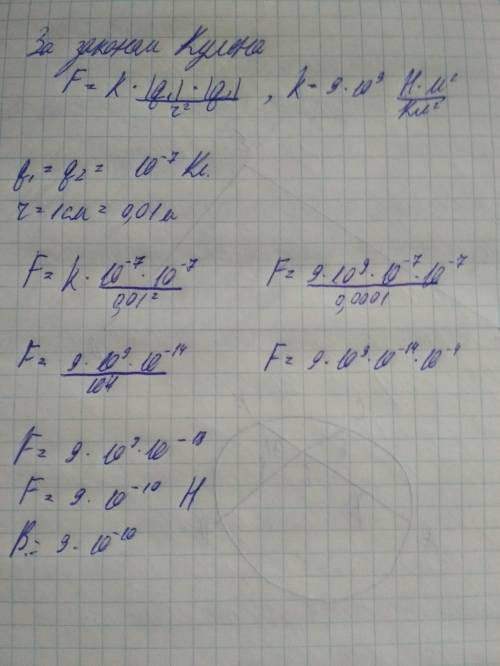 За законом Кулона
F = k · |q₁| · |q₂| / r² , k = 9 · 10⁹ Н · м² / Кл²
q₁ = q₂ = 10⁻⁷ Кл.
r = 1 см = 0,01 м
F = k · 10⁻⁷ · 10⁻⁷ / 0,01² F = 9 · 10⁹ · 10⁻⁷ · 10⁻⁷ / 0,0001
F = 9 · 10⁹ · 10⁻¹⁴ / 10⁴ F = 9 · 10⁹ · 10⁻¹⁴ · 10⁻⁴
F = 9 · 10⁹ · 10⁻¹⁸
F = 9 · 10⁻¹⁰ Н
В.: 9 · 10⁻¹⁰